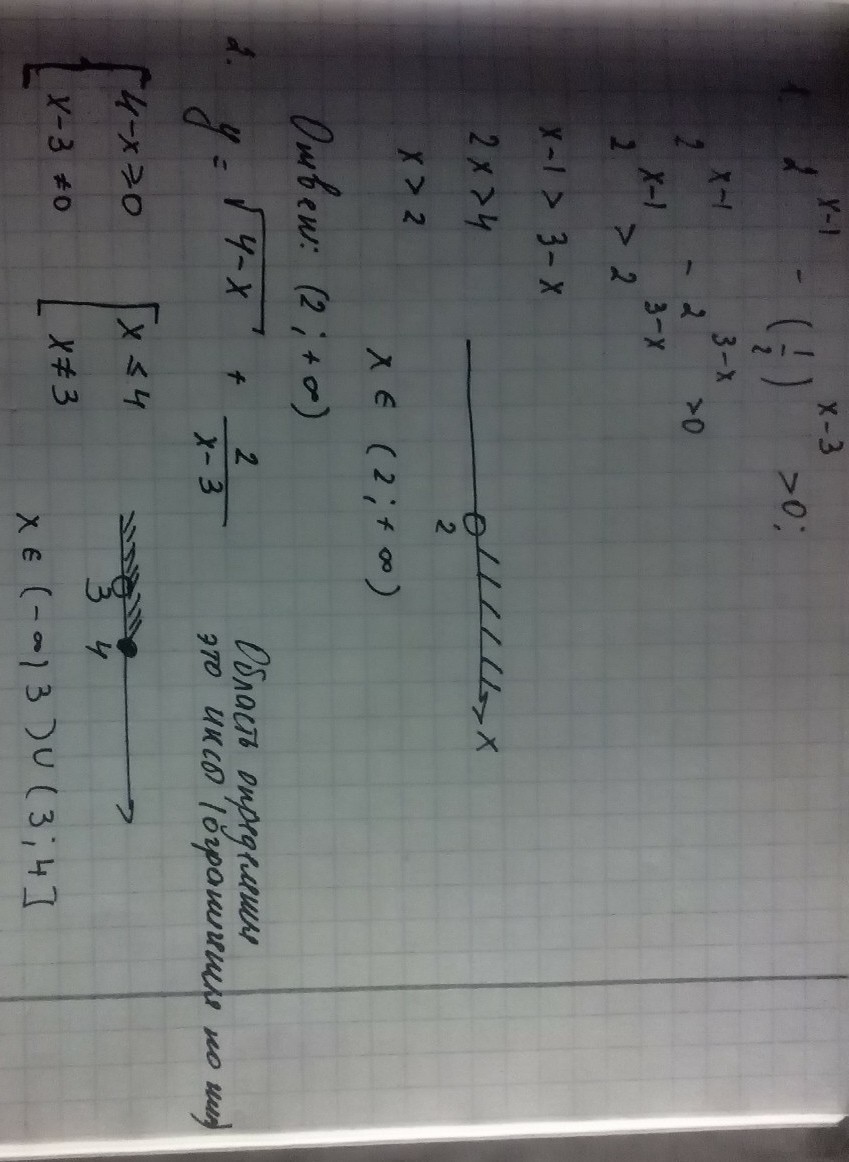 1. 2^(x-1) - (1/2)^(x-3) > 0;
2^(x-1) - 2^(3-x) > 0
2^(x-1) > 2^(3-x)
x-1 > 3-x
2x > 4
2 x
x > 2
x ∈ (2; +∞)
Ответ: (2; +∞)
2. y = √(4-x) + 2/(x-3)
Область определения
это иксы (ограничения по ним)
[ 4-x ≥ 0
x-3 ≠ 0
[ x ≤ 4
x ≠ 3
3 4
x ∈ (-∞; 3) ∪ (3; 4]